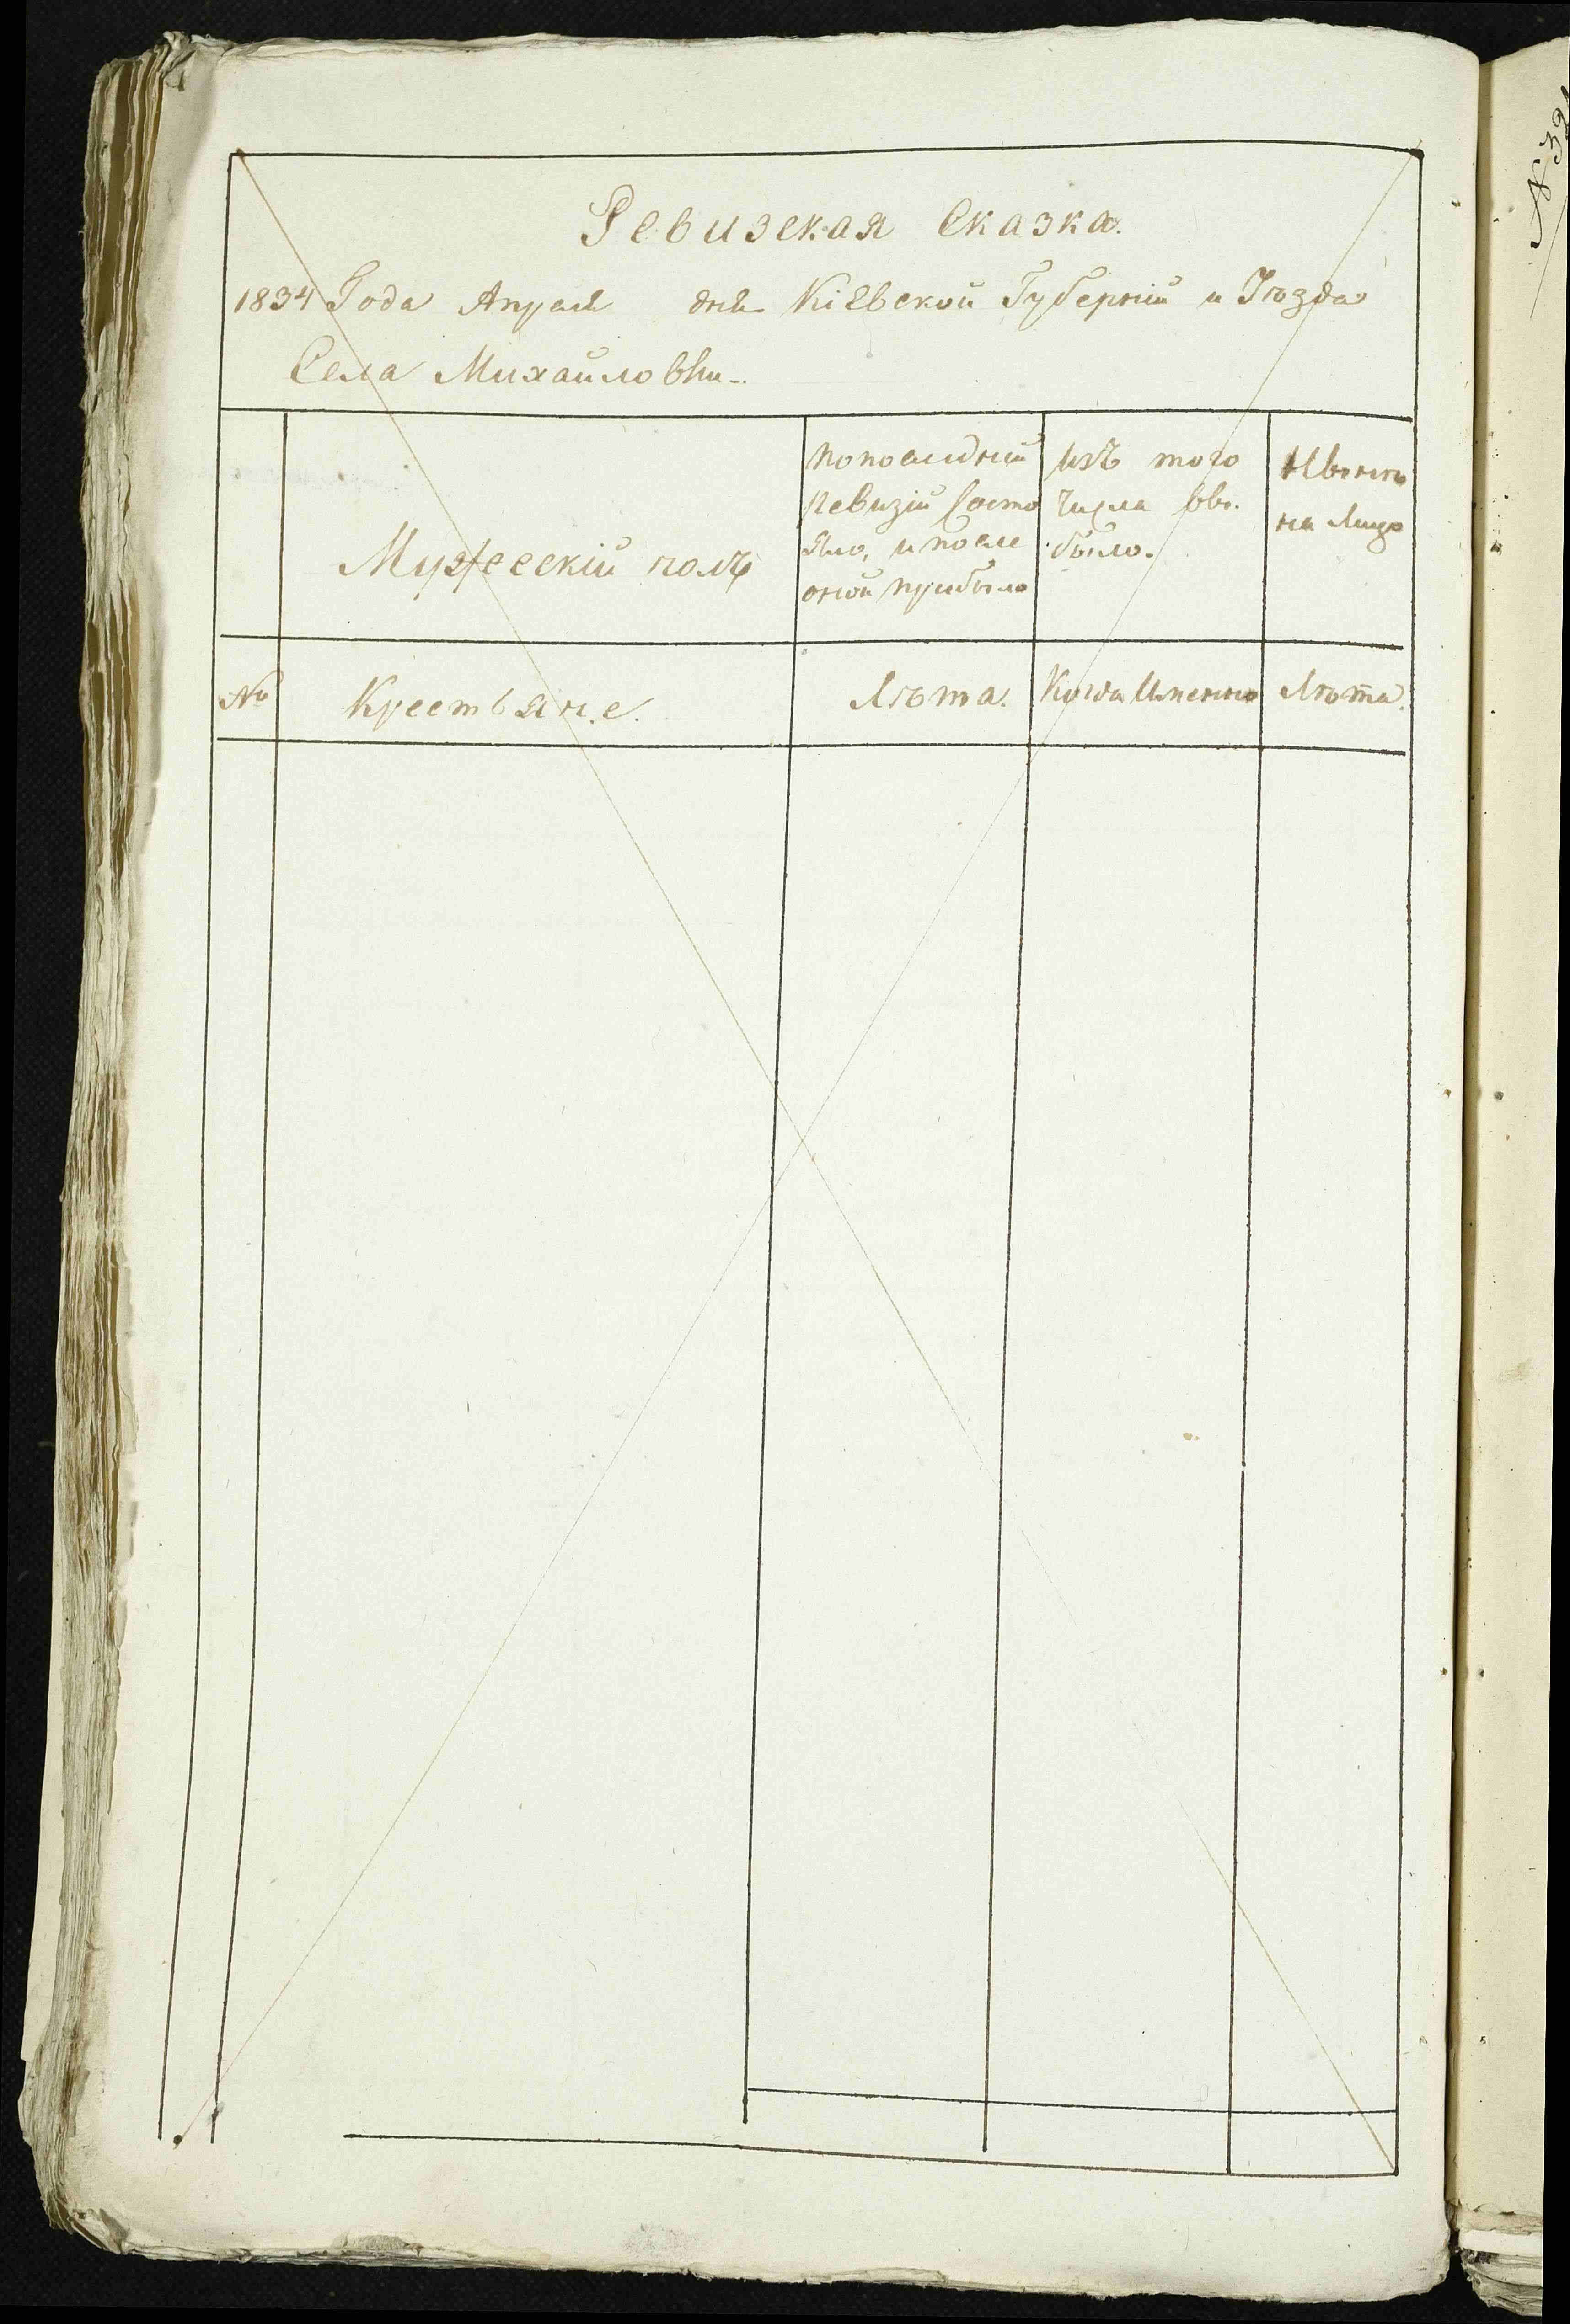 Ревизская Сказка.
1834 Года Апреля дня Кіевской Губерніи и Уѣзда
Села Михайловки
Мужескій полъ
По последней
Ревизіи Состо
яло, и после
оной прибыло
Изъ того
числа вы
было.
Нынѣ
на Лицо
№ Крестьяне. Лѣта. Когда Именно Лѣта.